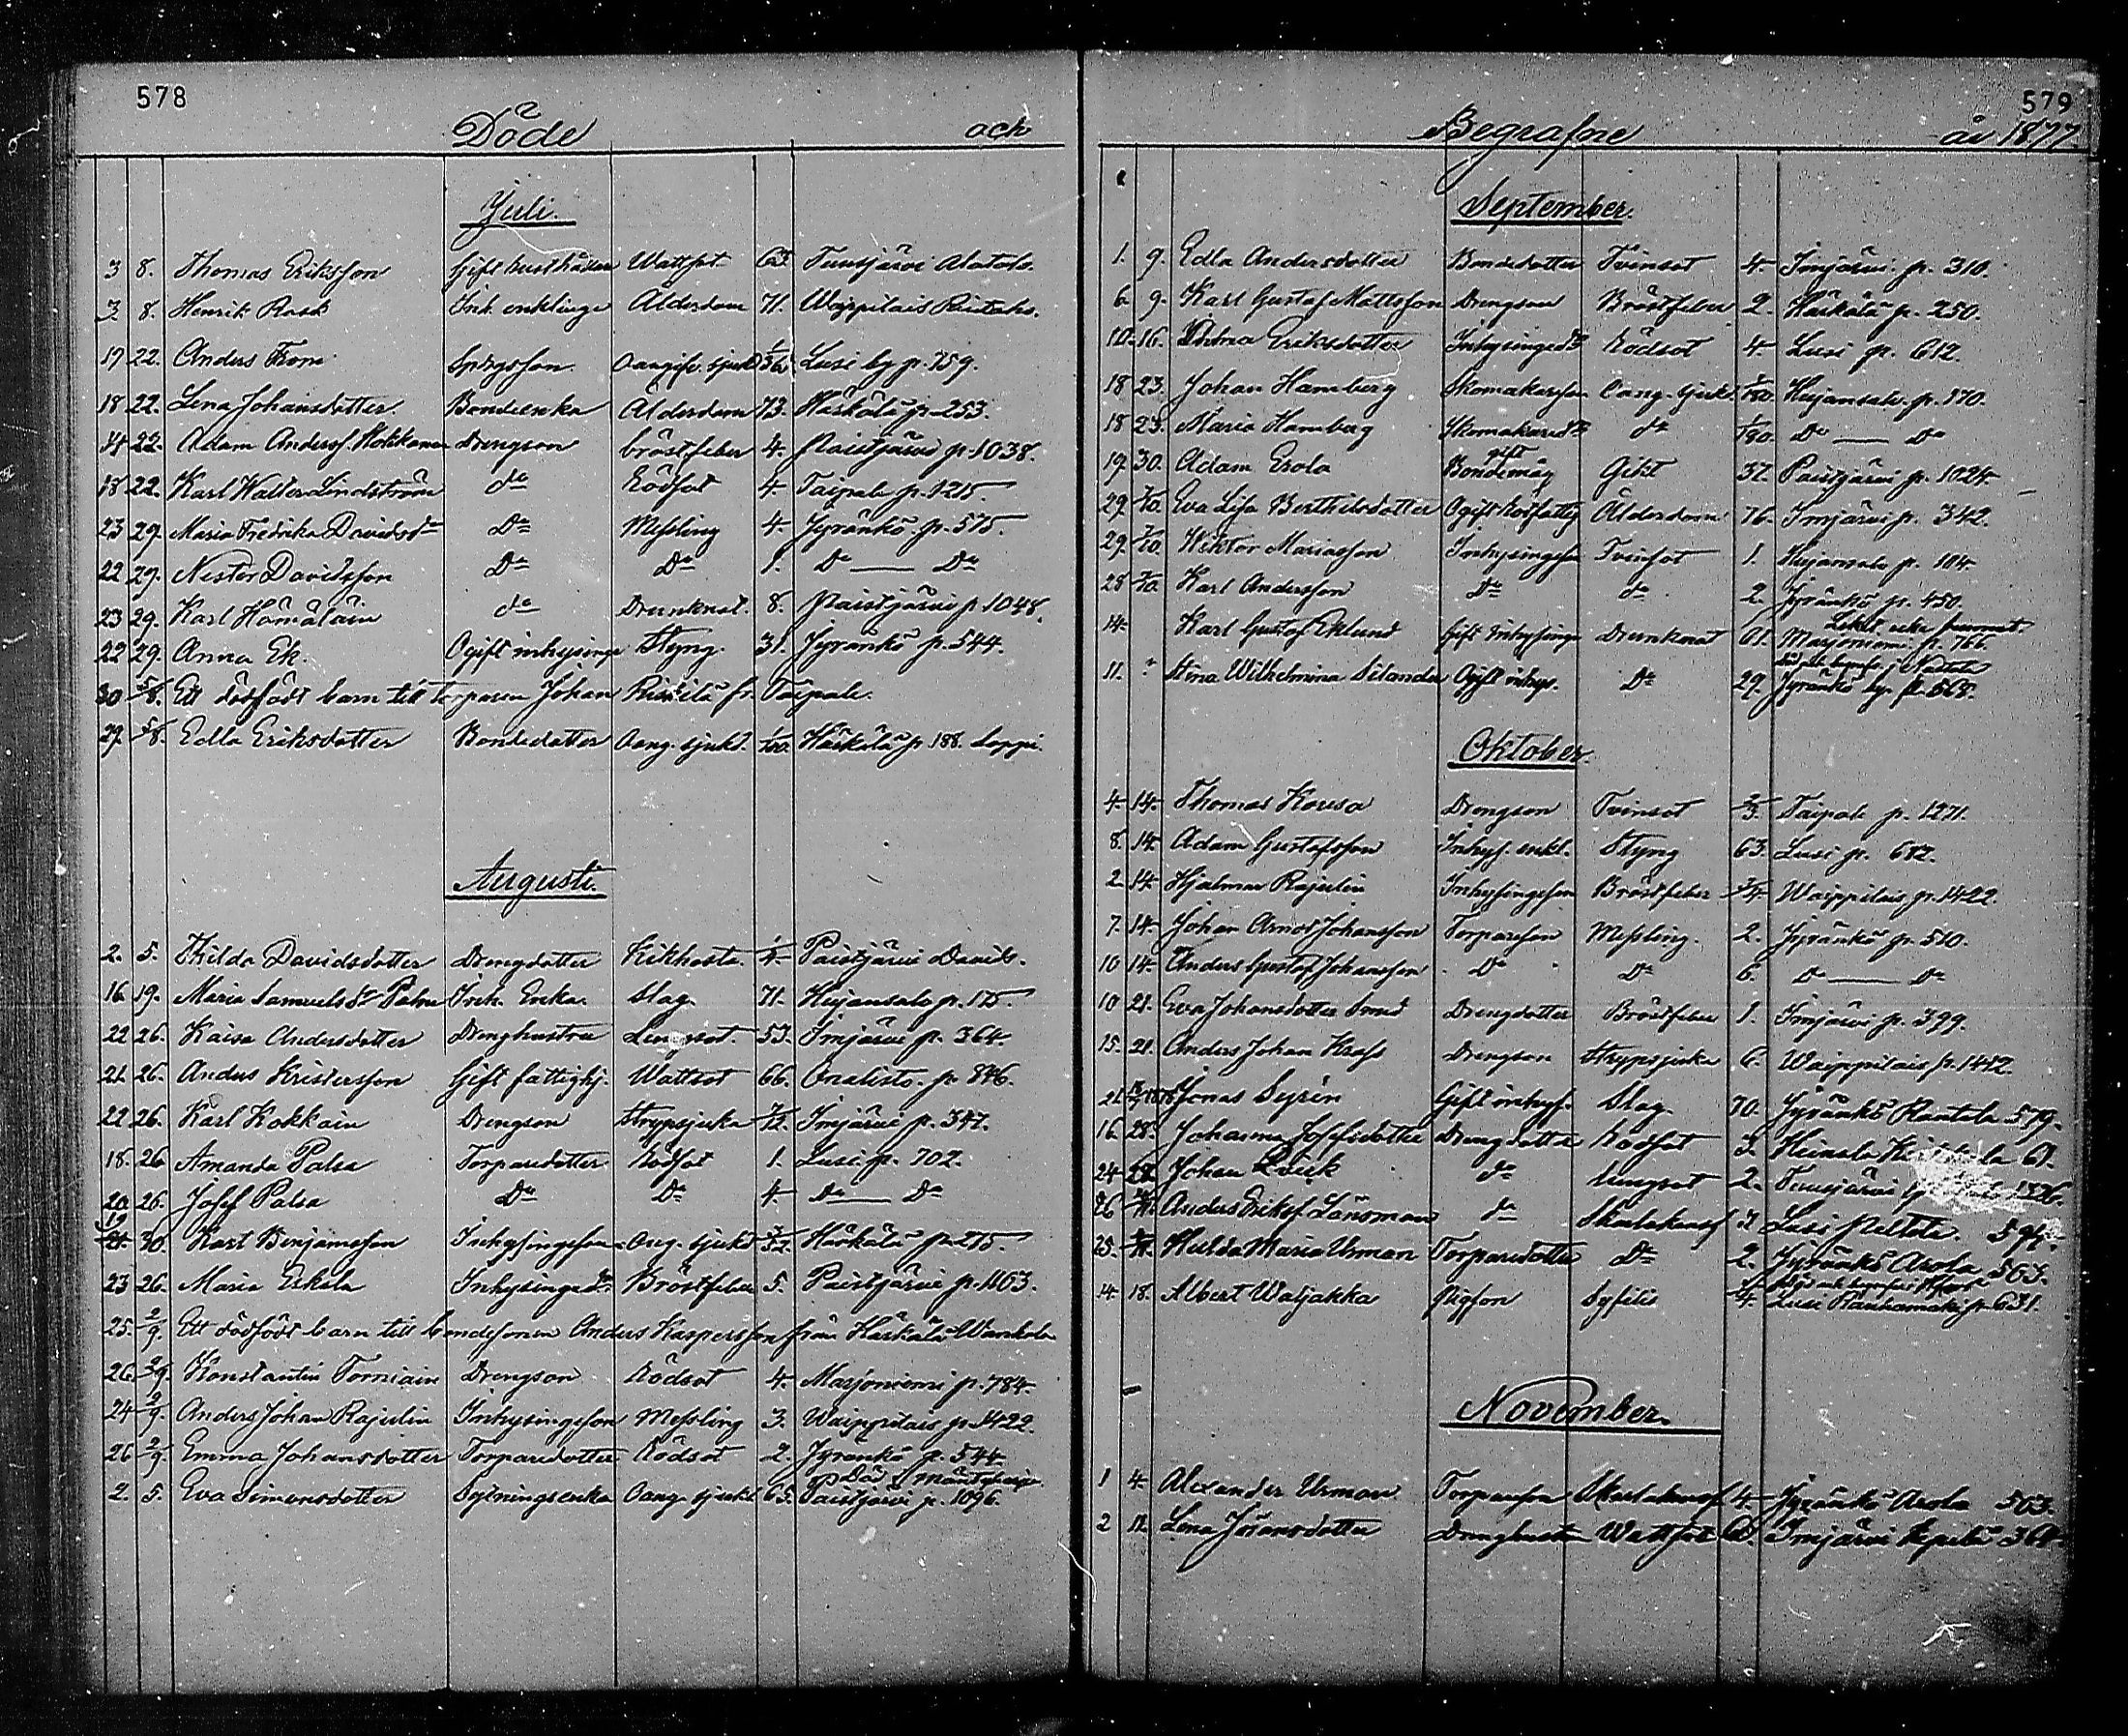 578
Döde och
Juli.
3 8. Thomas Eriksson Gift husthållar Wattsot Tuusjärvi Alatalo.
3 8. Henrik Rask Inh. enklinge Ålderdom 71. Waippilais Rintaho.
19 22. Anders From Oangifv. sjukd Lusi by p. 759.
18 22. Lena Johansdotter Bondeenka Ålderdom 73. Härkälä p. 253.
14 22. Adam Anderss. Drengson bröstfeber 4. Paistjärvi p. 1038.
18 22. Karl Walter Lindström do Rödsot 4. Taipale p. 1215.
23 29. Maria Fredrika Davidsdr Do Messling 4. Jyränkö p. 575.
22 29. Nestor Davidsson Do Do 1. Do — Do
23 29. Karl Hämäläin do Drunknat. 8. Paistjärvi p. 1048.
22 29. Anna Ek. Ogift inhysing Styng. 31. Jyränkö p. 544.
30 5/8. Ett dödfödt barn till torparen Johan fr. Taipale.
29. 5/8. Edla Eriksdotter Bondedotter Oang. sjukd. Härkälä p. 188.
Augusti.
2. 5. Hilda Davidsdotter Drengdotter Kikhosta. Paistjärvi Davids.
16 19. Maria Samuelsdr Palm Inh. Enka. Slag. 71. Hujansalo p. 175.
22 26. Kaisa Andersdotter Dreng­hustru Lungsot. 53. Imjärvi p. 364.
21 26. Anders Kristersson Gift fattighj. Wattsot 66. Onalisto. p. 846.
22 26. Karl Kokkain Drengson Strypsjuka Imjärvi p. 347.
18. 26 Amanda Palsa Torparedotter Rödsot 1. Lusi p. 702.
20 26. Josef Palsa Do Do 4. Do — Do
19 30. Karl Benjamsson Inhysingeson Oang. sjukd Härkälä p. 215.
23 26. Maria Eskola Inhysingedr Bröstfeber 5. Paistjärvi p. 1163.
25. 2/9. Ett dödfödt barn till bondesonen Anders Kaspersson från Härkälä Wanhala
26. 2/9. Konstantin Torniain Drengson Rödsot 4. Marjoniemi p. 784.
24 2/9. Anders Johan Rajulin Inhysingeson Messling 3. Waippilais p. 1422.
26 2/9. Emma Johansdotter Torparedotter Rödsot 2. Jyränkö p. 544.
Död i Mäntyharju
2. 5. Eva Simonsdotter Sytningsenka Oang. sjukd. 65. Paistjärvi p. 1096.
579
Begrafne år 1877.
September.
1. 9. Edla Andersdotter Bondedotter Tvinsot 4. Imjärvi p. 310.
6 9. Karl Gustaf Mattsson Drengson Bröstfeber 2. Härkälä p. 250.
10. 16. Eriksdotter Inhysingedr Rödsot 4. Lusi p. 612.
18 23. Johan Hamberg Skomakarson Oang. sjukd. Hujansalo p. 170.
18 23. Maria Hamberg Skomakaredr do Do — Do
19. 30. Adam Erola gift Bondemåg Gikt 37. Paistjärvi p. 1024.
29. 7/10. Eva Lisa Berthilsdotter Ogift Rotfattig Ålderdom 76. Imjärvi p. 342.
29. 7/10. Wiktor Mariasson Inhysingeson Tvinsot 1. Hujansalo p. 104
28 7/10. Karl Andersson Do do 2. Jyränkö p. 450.
14. Karl Gustaf Eklund Gift Inhysinge Drunknat 61. Marjoniemi p. 766.
11. Stina Wilhelmina Silander Ogift inhys. Do 29. Jyränkö by p. 565.
Oktober.
4. 14. Thomas Korsa Drengson Tvinsot Taipale p. 1271.
8. 14. Adam Gustafsson Inhys. enkl. Styng 63. Lusi p. 682.
2. 14. Hjalmar Rajulin Inhysingeson Bröstfeber Waippilais p. 1422.
7. 14. Johan Arvod Johansson Torpareson Messling. 2. Jyränkö p. 510.
10 14. Anders Gustaf Johansson Do Do 6. Do — Do
10 21. Eva Johansdotter Smed Drengdotter Bröstfeber 1. Imjärvi p. 399.
15. 21. Anders Johan Drengson Strypsjuka 6. Waippilais p. 1442.
21. Jonas Gift inhys. Slag. 70. Jyränkö Rantala 579.
16. 28. Johanna Josefsdotter Drengdotter Rödsot 3. Heinola
24 28. Johan do Lungsot 2. Tuusjärvi
26 Anders Erikss. Länsman do 3 Lusi
25. Hulda Maria Urman Torparedotter Do 2. Jyränkö Arola 563.
14. 18. Albert Watjakka Syfilis Lusi Rauhamäki p. 631.
November.
1 4. Alexander Urman Torpareson 4. Jyränkö Arola 563.
2 11. Lena Drenghustru Wattsot Imjärvi 364.